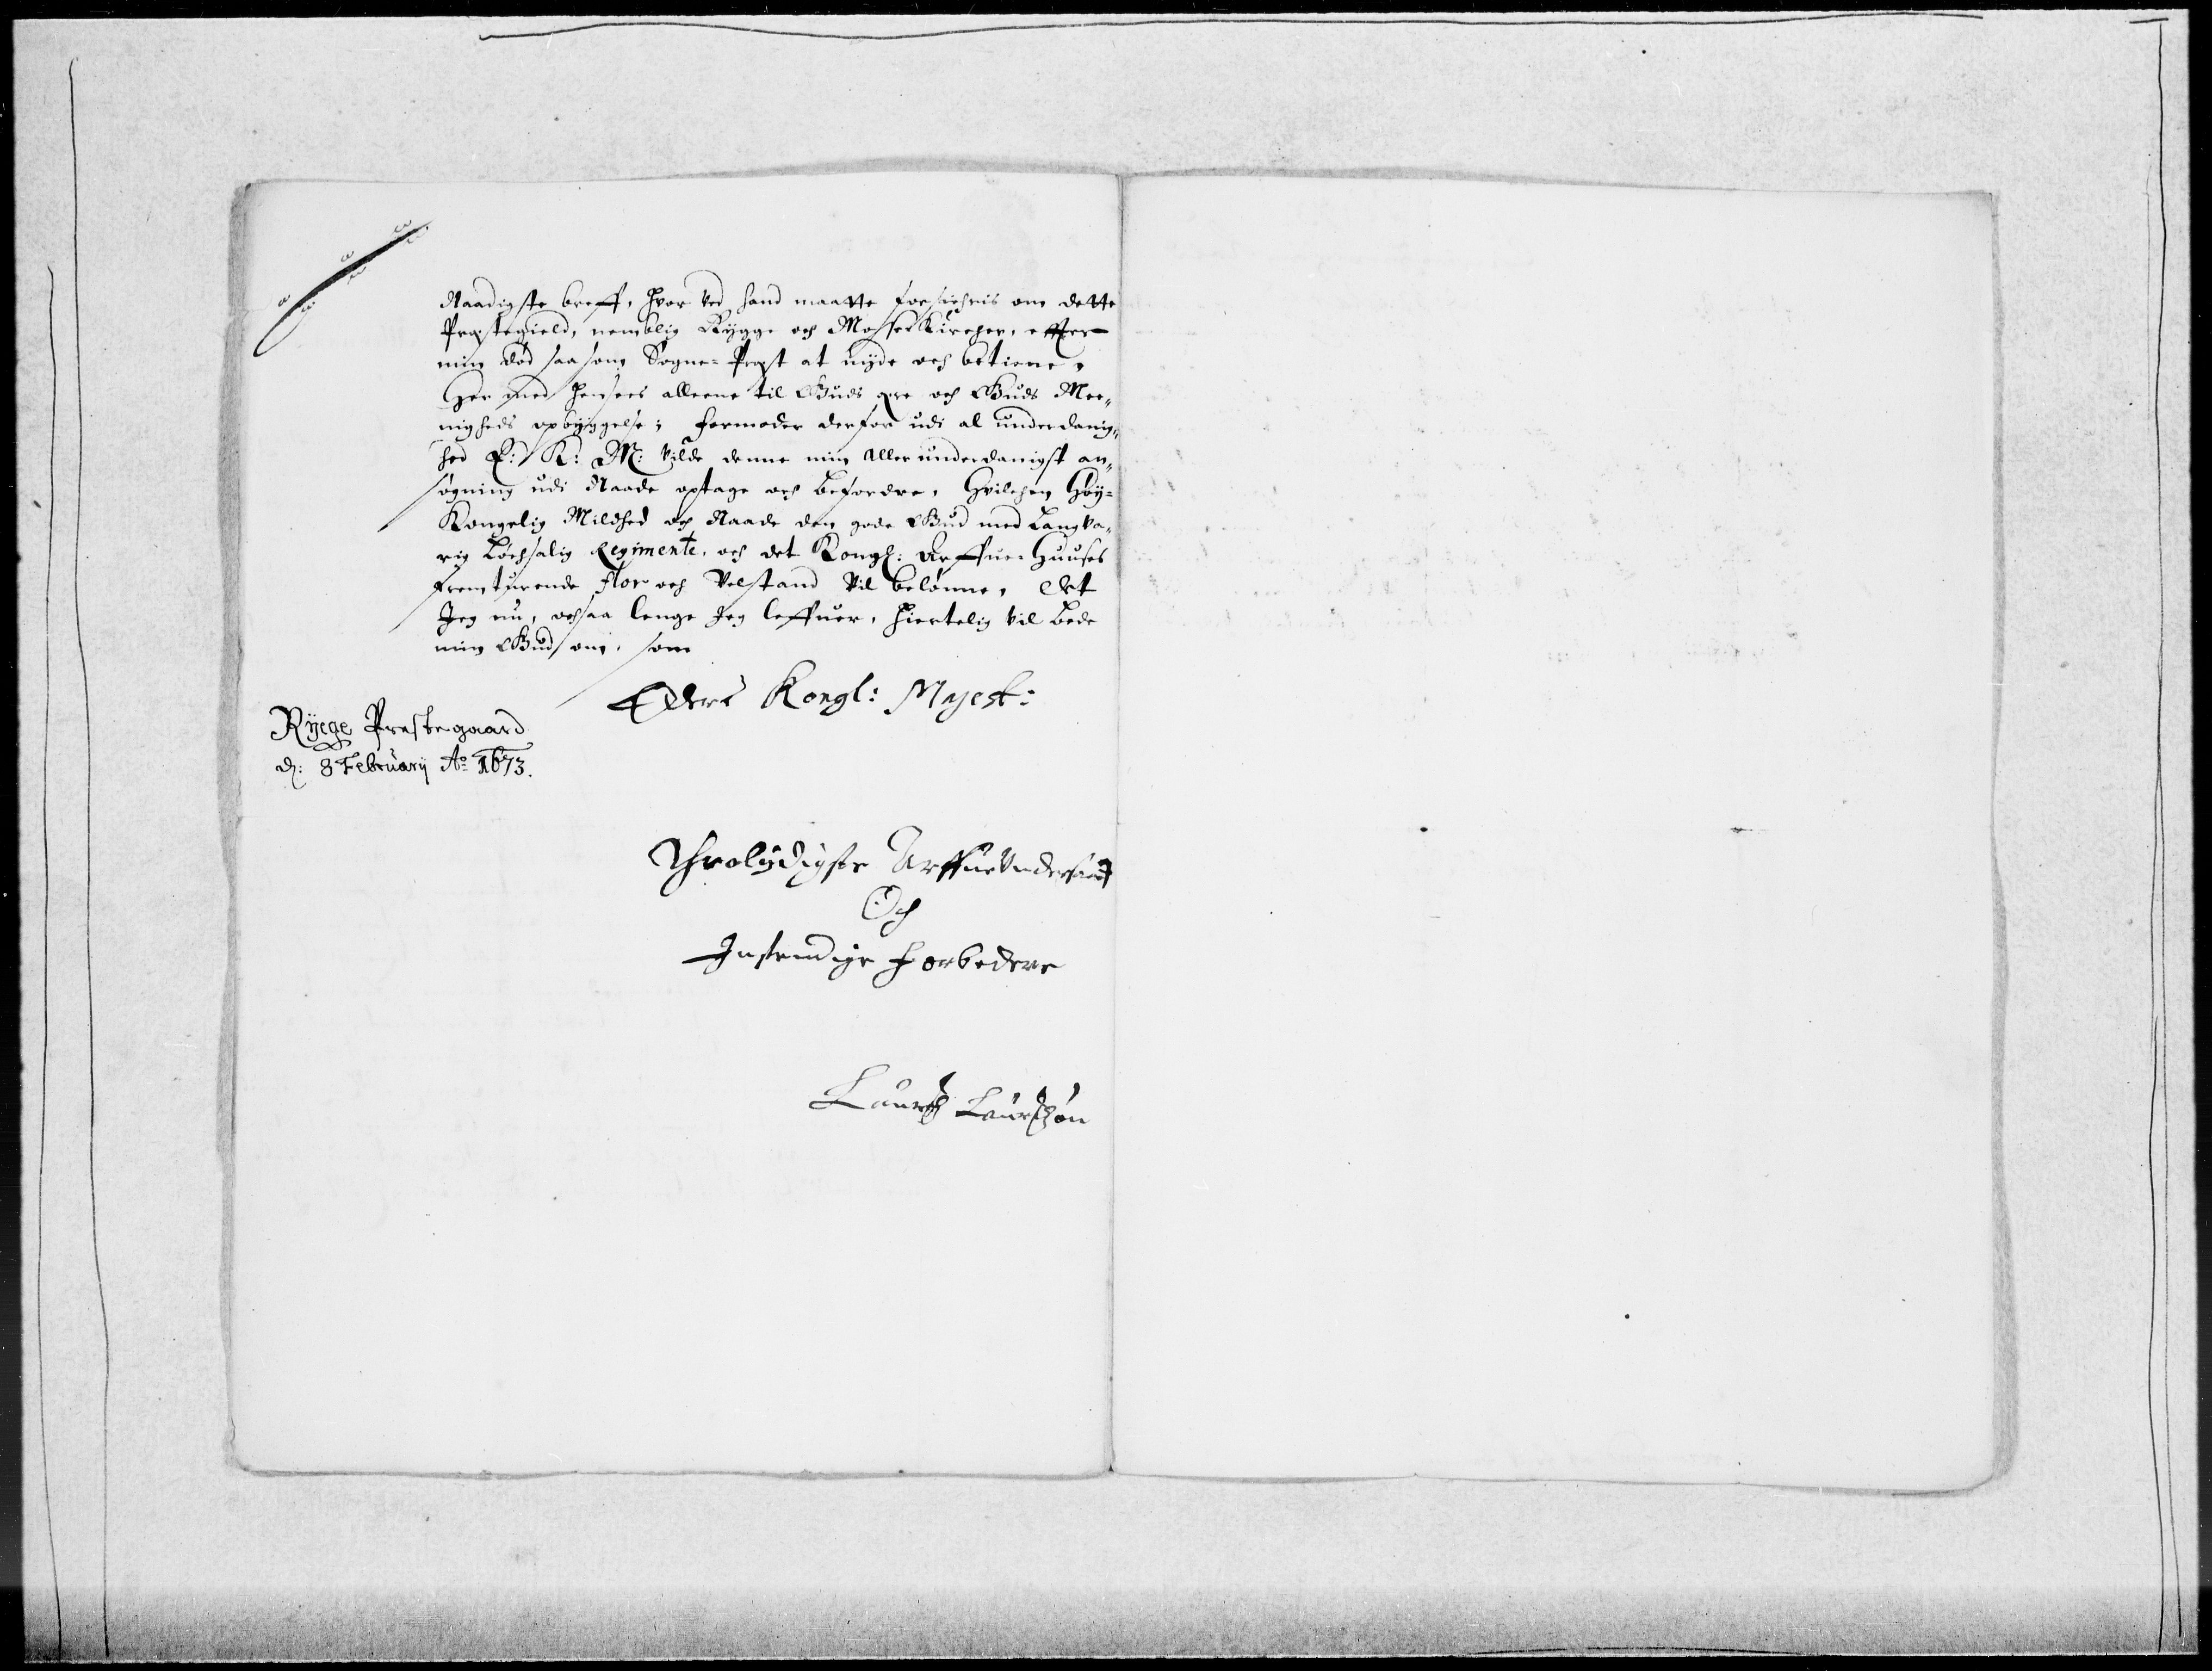 Naadigste breff, hvor ved hand maatte forsichris om dette
Præstegield, nemblig Rygge och Mosse Kircher, effter
min død saasom Sogne-Præst at nyde och betiene,
Her med hensees alleene til Guds ære och Guds Mee,,
nigheds opbyggelse; formoder derfor udi al underdanig,,
hed E: K: M: vilde denne min Aller underdanigst an,,
søgning udi Naade optage och befordre, Hvilchen Høy-
Kongelig Mildhed och Naade den gode Gud med Langva,,
rig Løchsalig Regimente, och det Kongl: Arffue Huuses
fremturende flor och Velstand vil belønne, Det
Jeg nu, och saa lenge Jeg leffuer, hiertelig vil bede
min Gud om, som
Eders Kongl: Majest:
Rygge Præstegaard
d: 8 Februarij Ao 1673.
Throlydigste Arffue Undersaat
Och
Instendige forbedere
Laurs Laurszøn